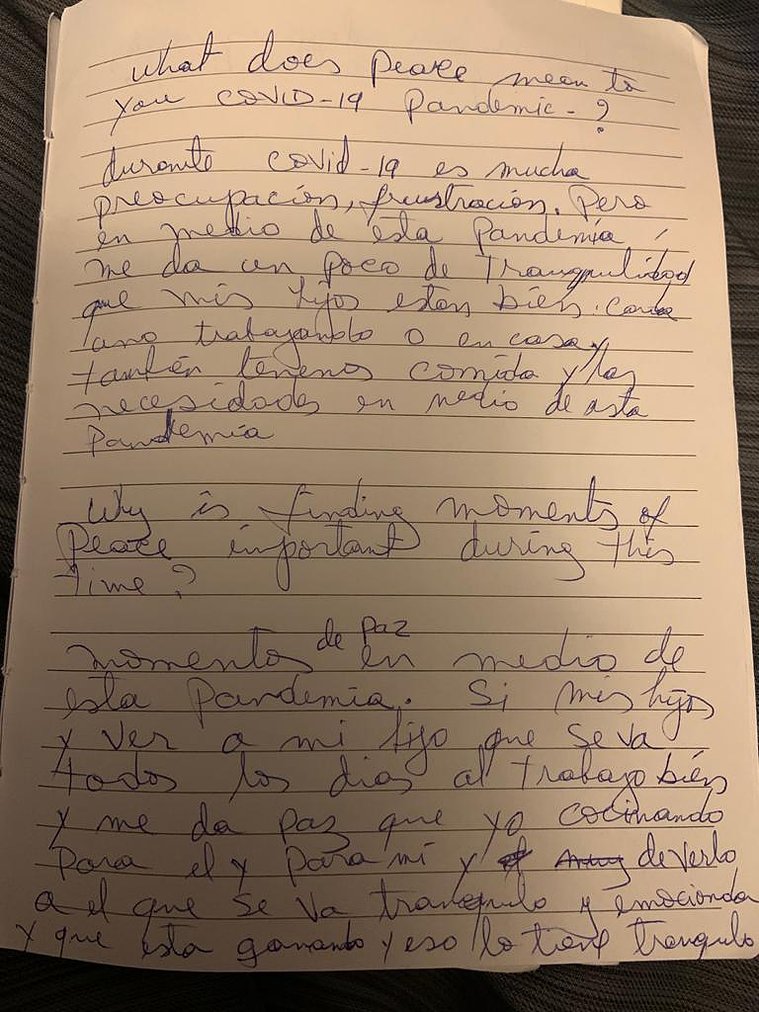 What does peace mean to
you COVID-19 Pandemic-?
durante covid-19 es mucha
preocupación, frustración. Pero
en medio de esta Pandemia,
me da un poco de Tranquilidad
que mis hijos estan bien. cada
uno trabajando o en casa y
tambén tenenos comida y las
necesidades en medio de esta
Pandemia
Why is finding moments of
Peace important during this
Time?
momentos de paz en medio de
esta Pandemia. Si mis hijos
y ver a mi hijo que se va
todos los dias al trabajo bién
y me da paz que yo cocinando
para el y para mi y de verlo
a el que se va tranquilo y emocionda
y que esta ganando y eso lo tiene tranquilo